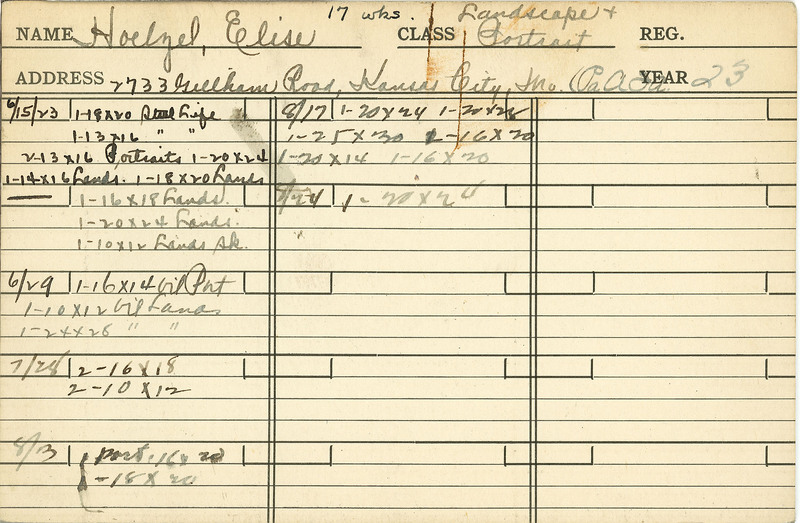 17 wks. Landscape +
NAME Hoelzel, Elise CLASS Portrait REG.
ADDRESS 2733 Gillham Road, Kansas City, Mo. YEAR 23
6/15/23 1-18x20 Still Life
1-13x16 " "
2-13x16 Portraits 1-20x24
1-14x16 Lands. 1-18x20 Lands
1-16x18 Lands.
1-20x24 Lands.
1-10x12 Lands Sk.
6/29 1-16x14 Oil Port
1-10x12 Oil Lands
1-24x28 " "
7/28 2-16x18
2-10x12
8/13 Port. 16x20
-18x20
8/17 1-20x24 1-20x28
1-25x30 2-16x20
1-20x14 1-16x20
8/24 1-20x24